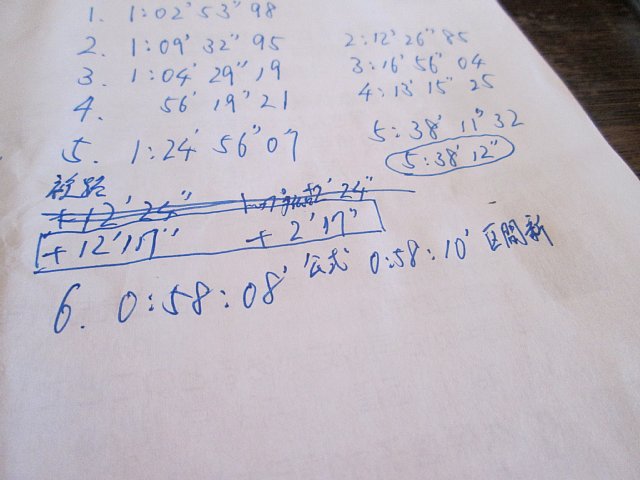 1. 1:02'53"98
2. 1:09'32"95 2:12'26"85
3. 1:04'29"19 3:16'56"04
4. 56'19"21 4:13'15"25
5. 1:24'56"07 5:38'11"32
5:38'12"
+12'24" 2'24"
+12'17" +2'17"
6. 0:58:08' 公式 0:58:10' 区間新